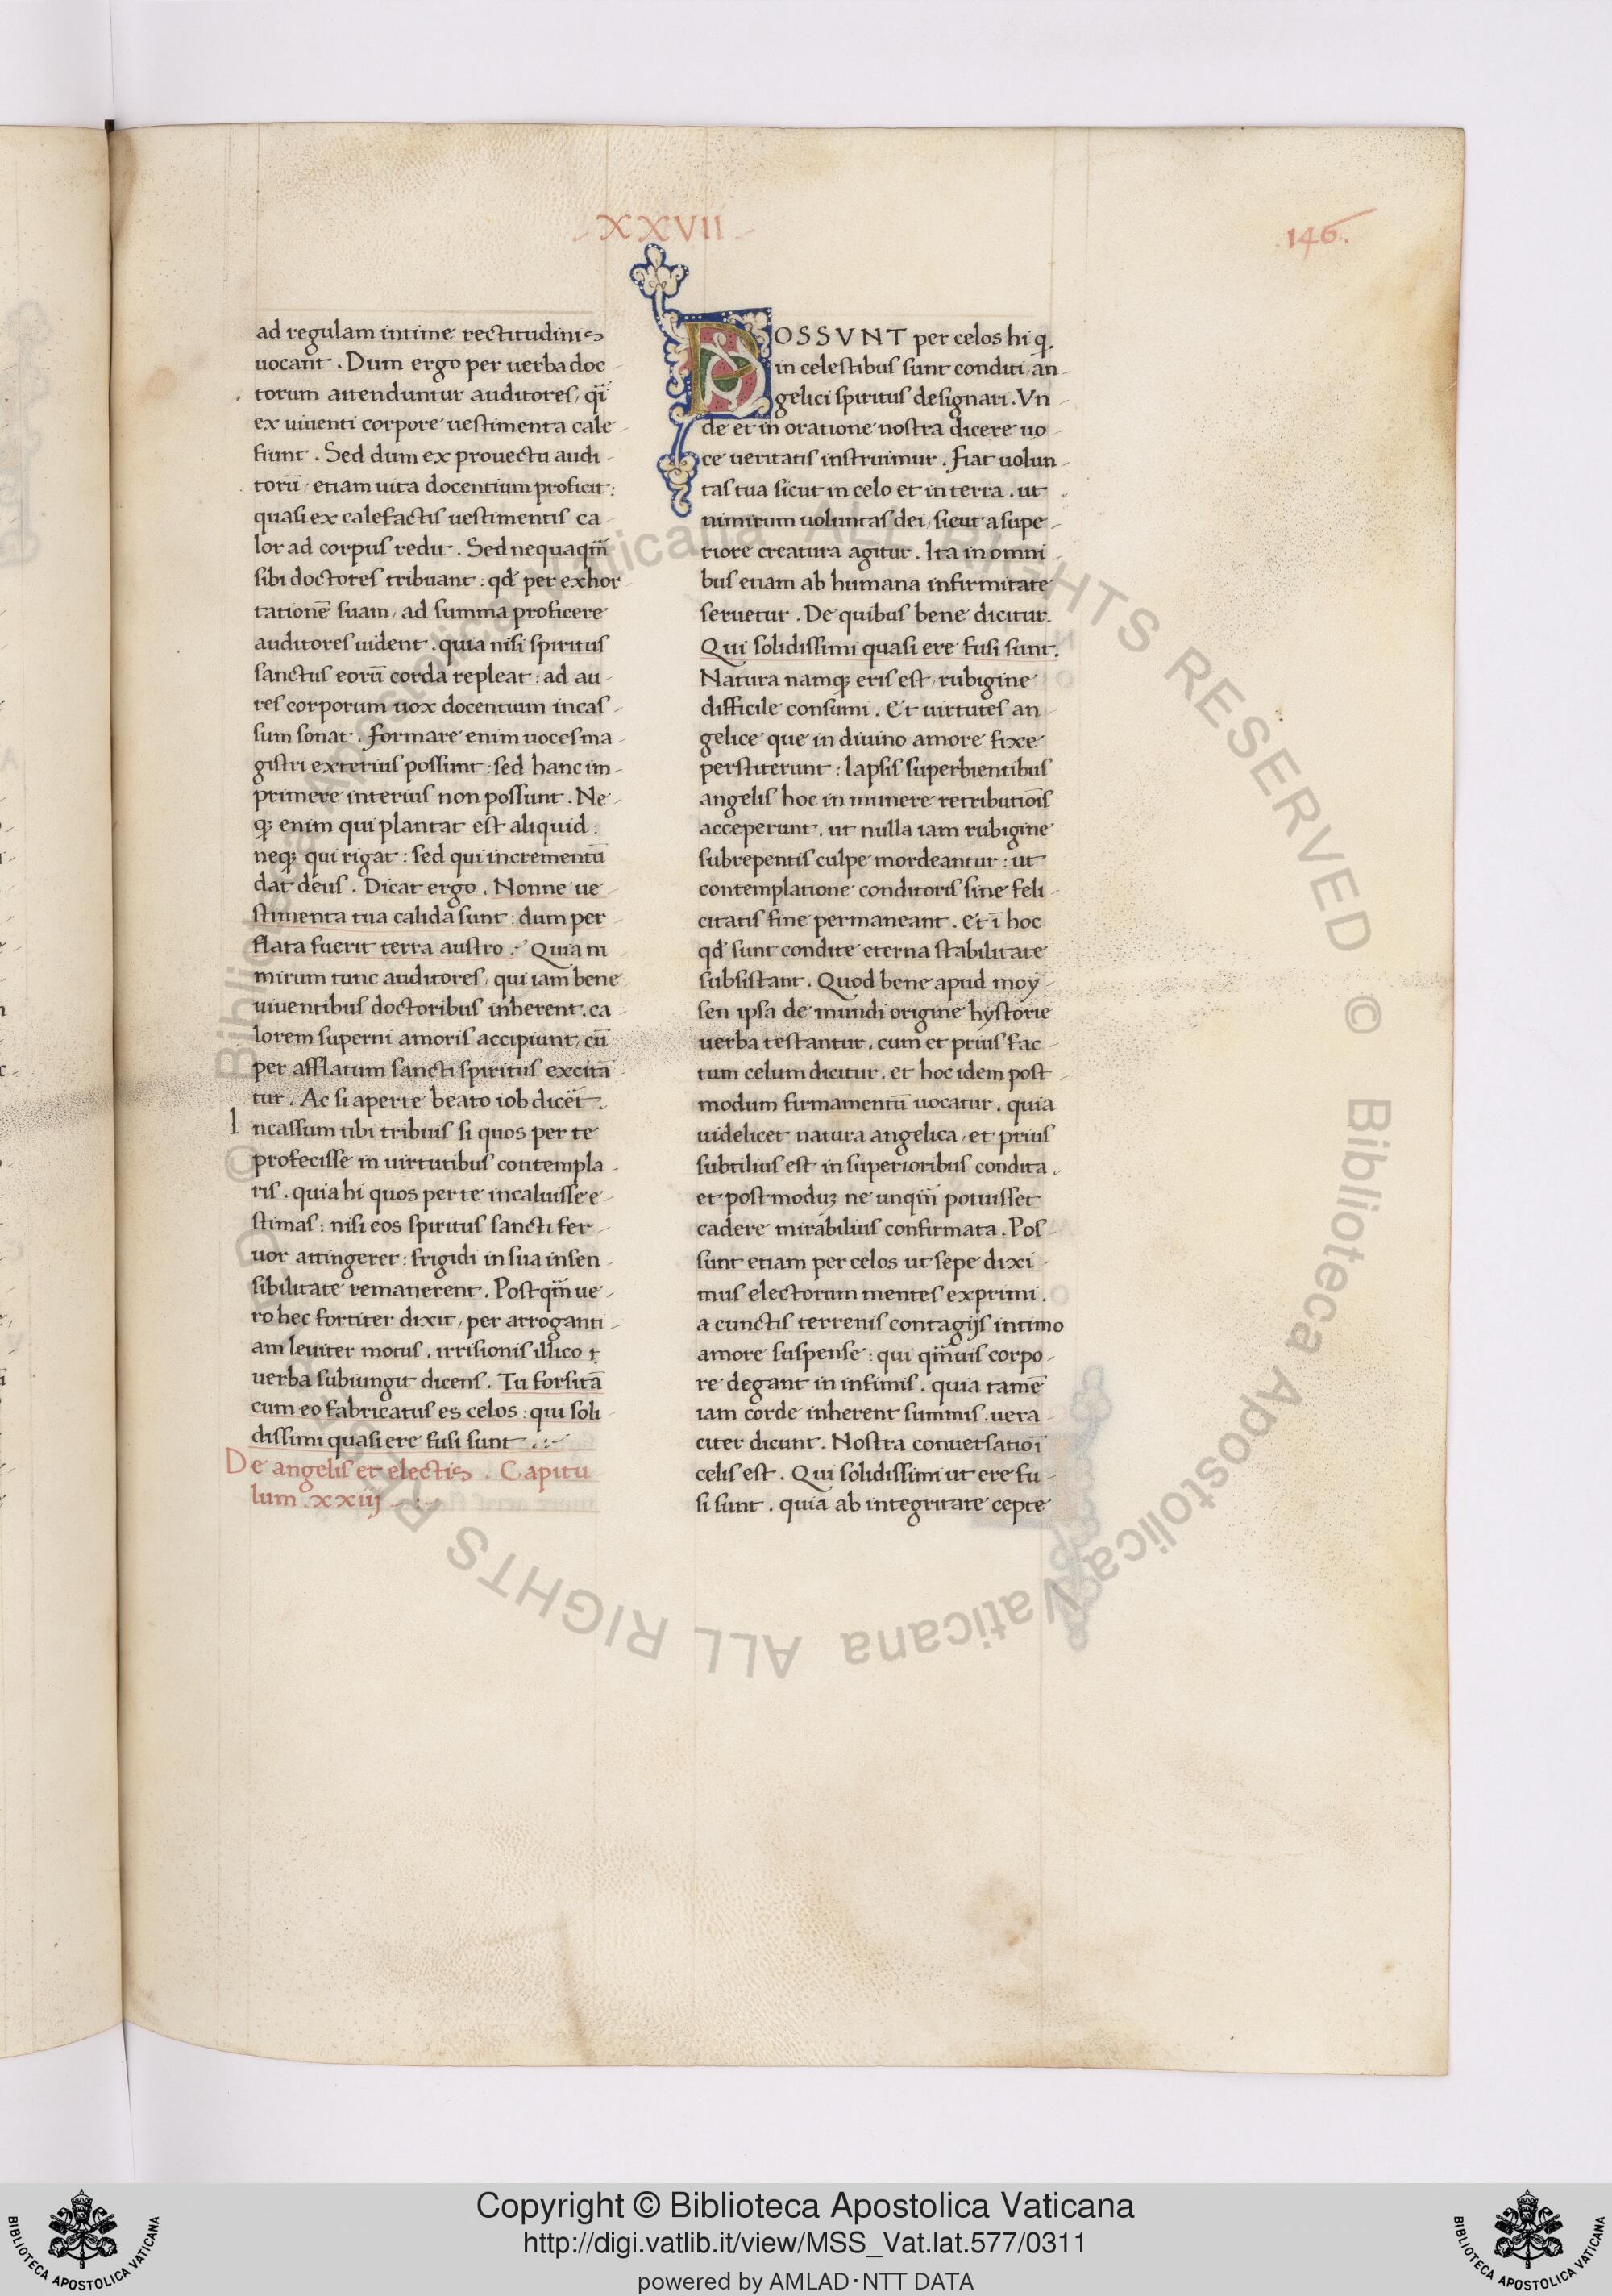 XXVII
146.
ad regulam intime rectitudinis
uocant . Dum ergo per uerba doc
torum attenduntur auditores, qï
ex uiuenti corpore uestimenta cale
fiunt . Sed dum ex prouectu audi
torū, etiam uita docentium proficit:
quasi ex calefactis uestimentis ca
lor ad corpus redit . Sed nequaqm̄
sibi doctores tribuant : qđ per exhor
tationē suam, ad summa proficere
auditores uident . quia nisi spiritus
sanctus eorū corda repleat : ad au
res corporum uox docentium incas
sum sonat . formare enim uoces ma
gistri exterius possunt : sed hanc im
primere interius non possunt . Ne
qꝫ enim qui plantat est aliquid :
neqꝫ qui rigat : sed qui incrementū
dat deus . Dicat ergo . Nonne ue
stimenta tua calida sunt : dum per
flata fuerit terra austro . Quia ni
mirum tunc auditores, qui iam bene
uiuentibus doctoribus inherent . ca
lorem superni amoris accipiunt, cū
per afflatum sancti spiritus excita
tur . Ac si aperte beato iob dicēt .
Incassum tibi tribuis si quos per te
profecisse in uirtutibus contempla
ris . quia hi quos per te incaluisse e
stimas : nisi eos spiritus sancti fer
uor attingeret : frigidi in sua insen
sibilitate remanerent . Postqm̄ ue
ro hec fortiter dixit, per arroganti
am leuiter motus . irrisionis illico
uerba subiungit dicens . Tu forsitā
cum eo fabricatus es celos : qui soli
dissimi quasi ere fusi sunt .
De angelis et electis . Capitu
lum . xxiij
POSSVNT per celos hi q.
in celestibus sunt conditi, an
gelici spiritus designari . Vn
de et in oratione nostra dicere uo
ce ueritatis instruimur . fiat uolun
tas tua sicut in celo et in terra . ut
nimirum uoluntas dei, sicut a supe
riore creatura agitur . Ita in omni
bus etiam ab humana infirmitate
seruetur . De quibus bene dicitur.
Qui solidissimi quasi ere fusi sunt.
Natura namqꝫ eris est, rubigine
difficile consumi . Et uirtutes an
gelice que in diuino amore fixe
perstiterunt : lapsis superbientibus
angelis hoc in munere retributiōis
acceperunt . ut nulla iam rubigine
subrepentis culpe mordeantur : ut
contemplatione conditoris sine feli
citatis fine permaneant . et ī hoc
qđ sunt condite eterna stabilitate
subsistant . Quod bene apud moy
sen ipsa de mundi origine hystorie
uerba testantur . cum et prius fac
tum celum dicitur . et hoc idem post
modum firmamentū uocatur . quia
uidelicet natura angelica, et prius
subtilius est in superioribus condita .
et postmoduꝫ ne unqm̄ potuisset
cadere mirabilius confirmata . Pos
sunt etiam per celos ut sepe dixi
mus electorum mentes exprimi .
a cunctis terrenis contagijs intimo
amore suspense : qui qm̄uis corpo
re degant in infimis . quia tamē
iam corde inherent summis . uera
citer dicunt . Nostra conuersatio ī
celis est . Qui solidissimi ut ere fu
si sunt . quia ab integritate cepte
© Biblioteca Apostolica Vaticana ALL RIGHTS RESERVED © Biblioteca Apostolica Vaticana ALL RIGHTS RESERVED
Copyright © Biblioteca Apostolica Vaticana
http://digi.vatlib.it/view/MSS_Vat.lat.577/0311
powered by AMLAD·NTT DATA
BIBLIOTECA APOSTOLICA VATICANA
BIBLIOTECA APOSTOLICA VATICANA